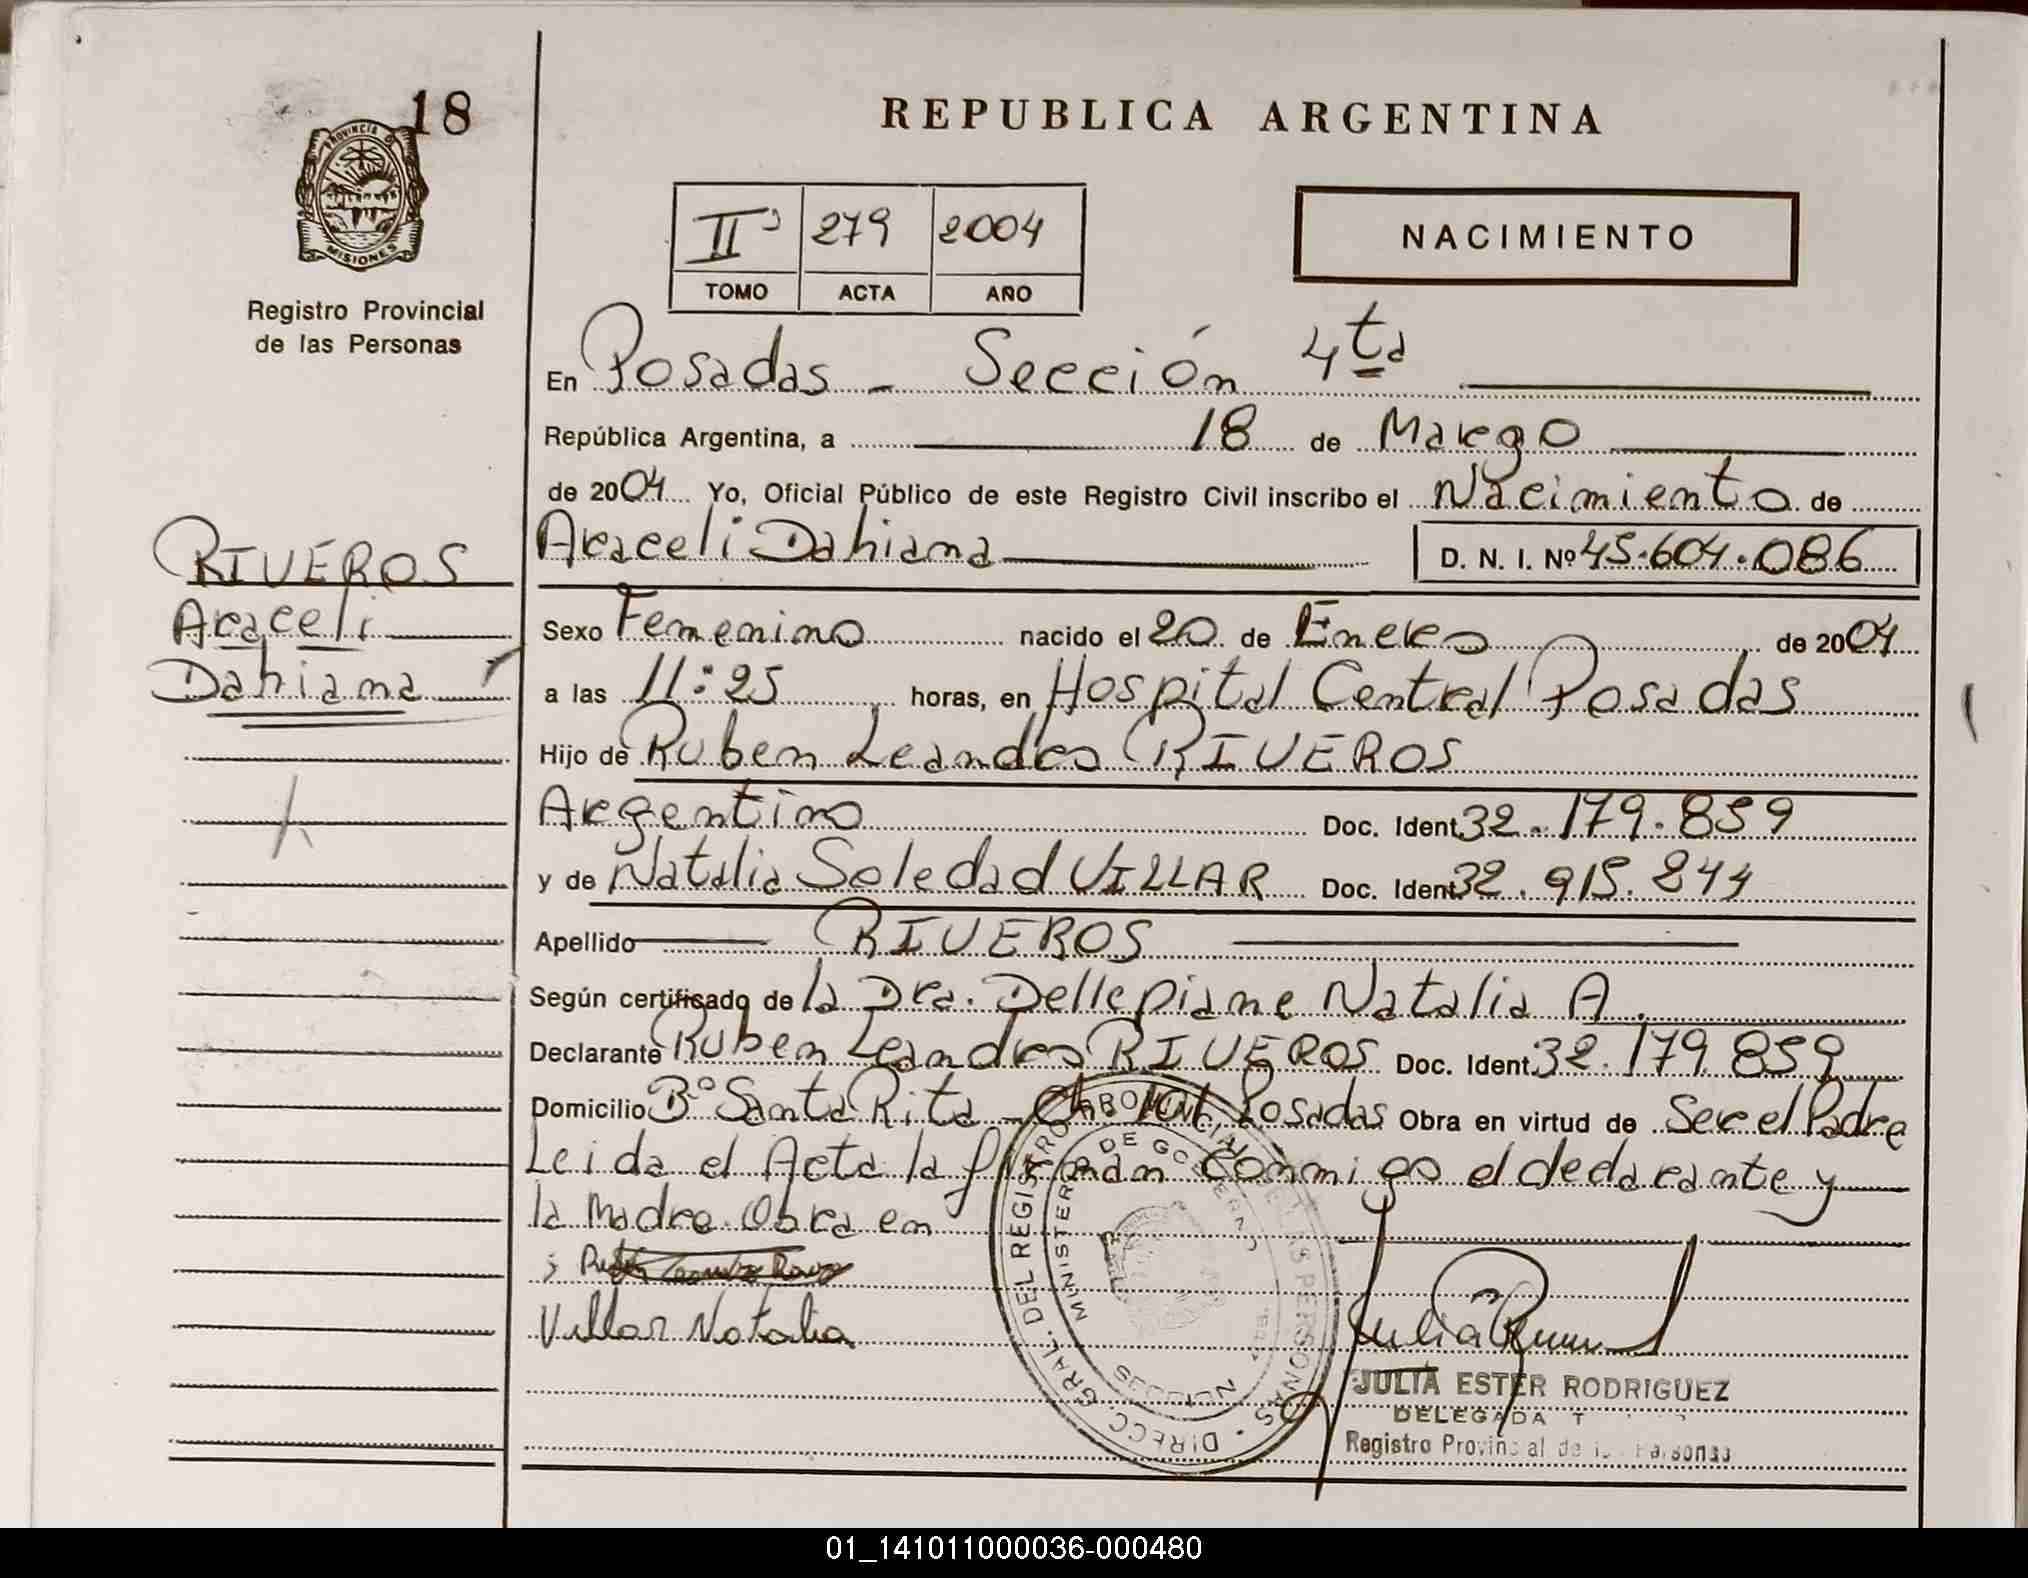 18
PROVINCIA D
MISIONES
Registro Provincial
de las Personas
RIVEROS
Araceli
Dahiana
REPUBLICA ARGENTINA
II 279 2004
TOMO ACTA AÑO
NACIMIENTO
En Posadas - Sección 4ta
República Argentina, a 18 de Marzo
de 2004 Yo, Oficial Público de este Registro Civil inscribo el Nacimiento de
Araceli Dahiana D. N. I. Nº 45.604.086
Sexo Femenino nacido el 20 de Enero de 2004
a las 11:25 horas, en Hospital Central Posadas
Hijo de Ruben Leandro RIVEROS
Argentino Doc. Ident. 32.179.859
y de Natalia Soledad VILLAR Doc. Ident. 32.915.244
Apellido RIVEROS
Según certificado de la Dra. Dellepiane Natalia A.
Declarante Ruben Leandro RIVEROS Doc. Ident. 32.179.859
Domicilio Bº Santa Rita - Posadas Obra en virtud de Ser el Padre
Leida el Acta la firman conmigo el declarante y
la Madre. Obra en
Villar Natalia
DIRECC. GRAL. DEL REGISTRO PROVINCIAL DE LAS PERSONAS
MINISTERIO DE GOBIERNO
JULIA ESTER RODRIGUEZ
DELEGADA
Registro Provincial de las Personas
01_141011000036-000480